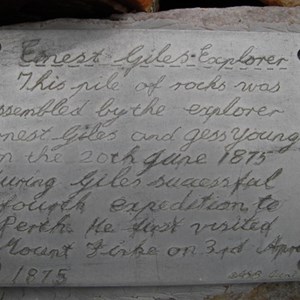 Ernest Giles-Explorer
This pile of rocks was
assembled by the explorer
Ernest Giles and Jess Young
on the 20th June 1875
during Giles sucessful
fourth expedition to
Perth. He first visited
Mount Finke on 3rd April
1875